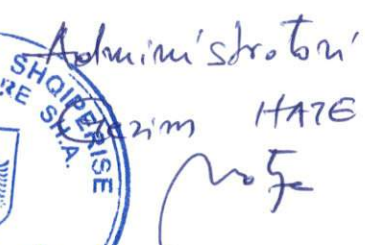 Administratori
Gezim HAZE
SHQIPERISE
RE SH.A.